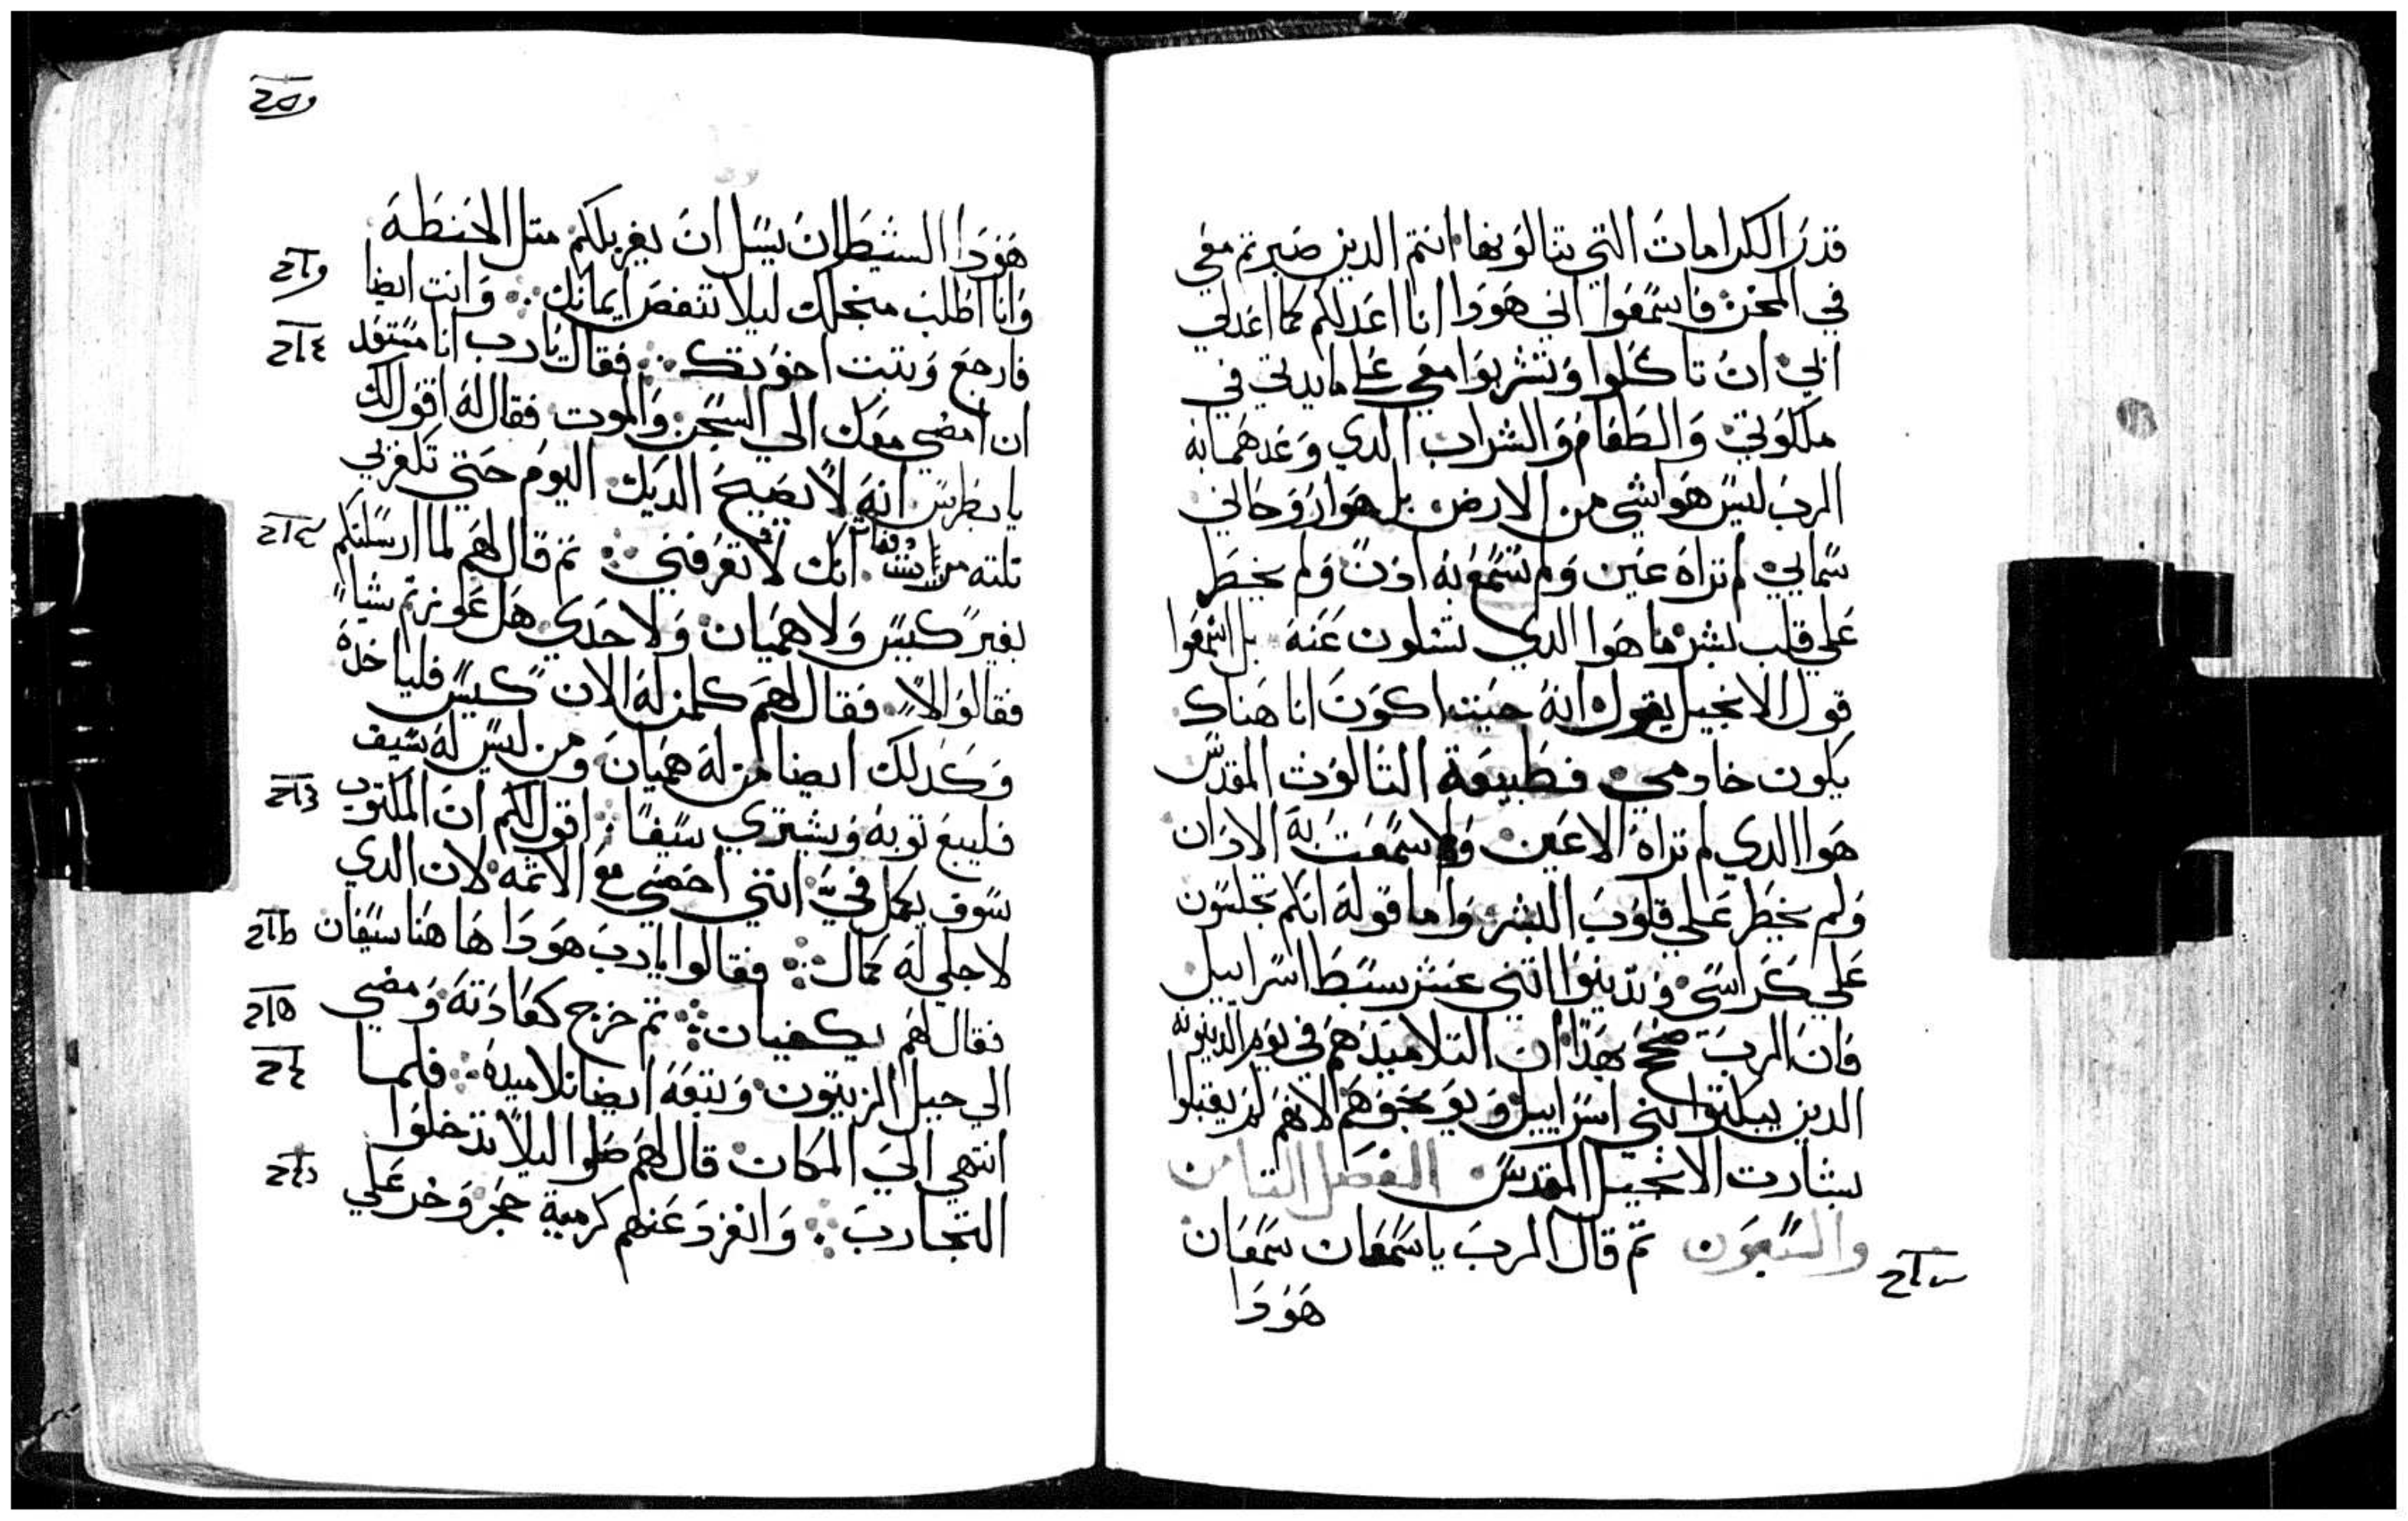 قدر الكرامات التي ينالونها انتم الدين صبرتم معي
في المحن فاسمعوا اني هودا انا اعد لكم كما اعد لي
ابي ان تاكلوا وتشربوا معي علي مايدتي في
ملكوتي والطعام والشراب الدي وعدهم به
الرب ليس هوا شي من الارض بل هوا روحاني
سمايي لم تراه عين ولم تسمع به ادن ولم يخطر
علي قلب بشر ما هوا الدي تسلون عنه بل اسمعوا
قول الانجيل يقول انه حيت اكون انا هناك
يكون خادمي فطبيعة التالوت المقدس
هوا الدي لم تراه الاعين ولا سمعت به الادان
ولم يخطر علي قلوب البشر واما قوله انكم تجلسون
علي كراسي وتدينوا اتني عشر سبط اسراييل
فان الرب صحح بهدا ان التلاميد هم في يوم الدينونه
الدين يبكتوا بني اسراييل ويوبخوهم لانهم لم يقبلوا
بشارت الانجيل المقدس الفصل التامن
والسبعون تم قال الرب ياسمعان سمعان
هودا
هودا الشيطان يسل ان يغربلكم متل الحنطه
وانا اطلب منجلك ليلا تنقص ايمانك وانت ايضا
فارجع وتبت اخوتك فقال يارب انا مستعد
ان امضي معك الي السجن والموت فقال له اقول لك
يا بطرس انه لا يصيح الديك اليوم حتي تكفر بي
تلته مرات انك لا تعرفني تم قال لهم لما ارسلتكم
بغير كيس ولا هميان ولا حدي هل عوزتم شيا
فقالوا لا فقال لهم كلمن له الان كيس فلياخده
وكدلك ايضا من له هميان ومن ليس له سيف
فليبع توبه ويشتري سيفا اقول لكم ان المكتوب
سوف يكمل في انني احصي مع الاتمه لان الدي
لاجلي له كمال فقالوا يارب هودا ها هنا سيفان
فقال لهم يكفيان تم خرج كعادته ومضي
الي جبل الزيتون وتبعه ايضا تلاميده فلما
انتهي الي المكان قال لهم صلوا ليلا تدخلوا
التجارب وانفرد عنهم كرمية حجر وخر علي